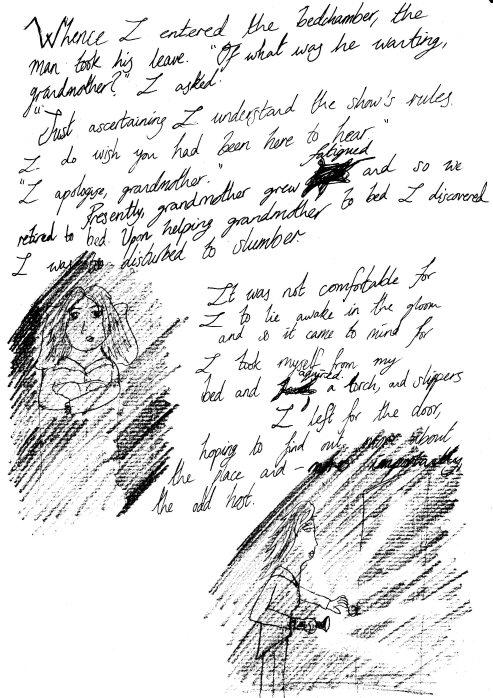 Whence I entered the bedchamber, the
man took his leave. "Of what was he wanting,
grandmother?" I asked.
"Just ascertaining I understand the show's rules.
I do wish you had been here to hear."
"I apologise, grandmother."
fatigued
Presently, grandmother grew and so we
retired to bed. Upon helping grandmother to bed I discovered
I was too disturbed to slumber.
It was not comfortable for
I to lie awake in the gloom
and so it came to mind for
I took myself from my
acquired
bed and a torch, and slippers
I left for the door,
hoping to find out more about
the place and - more importantly
the odd host.